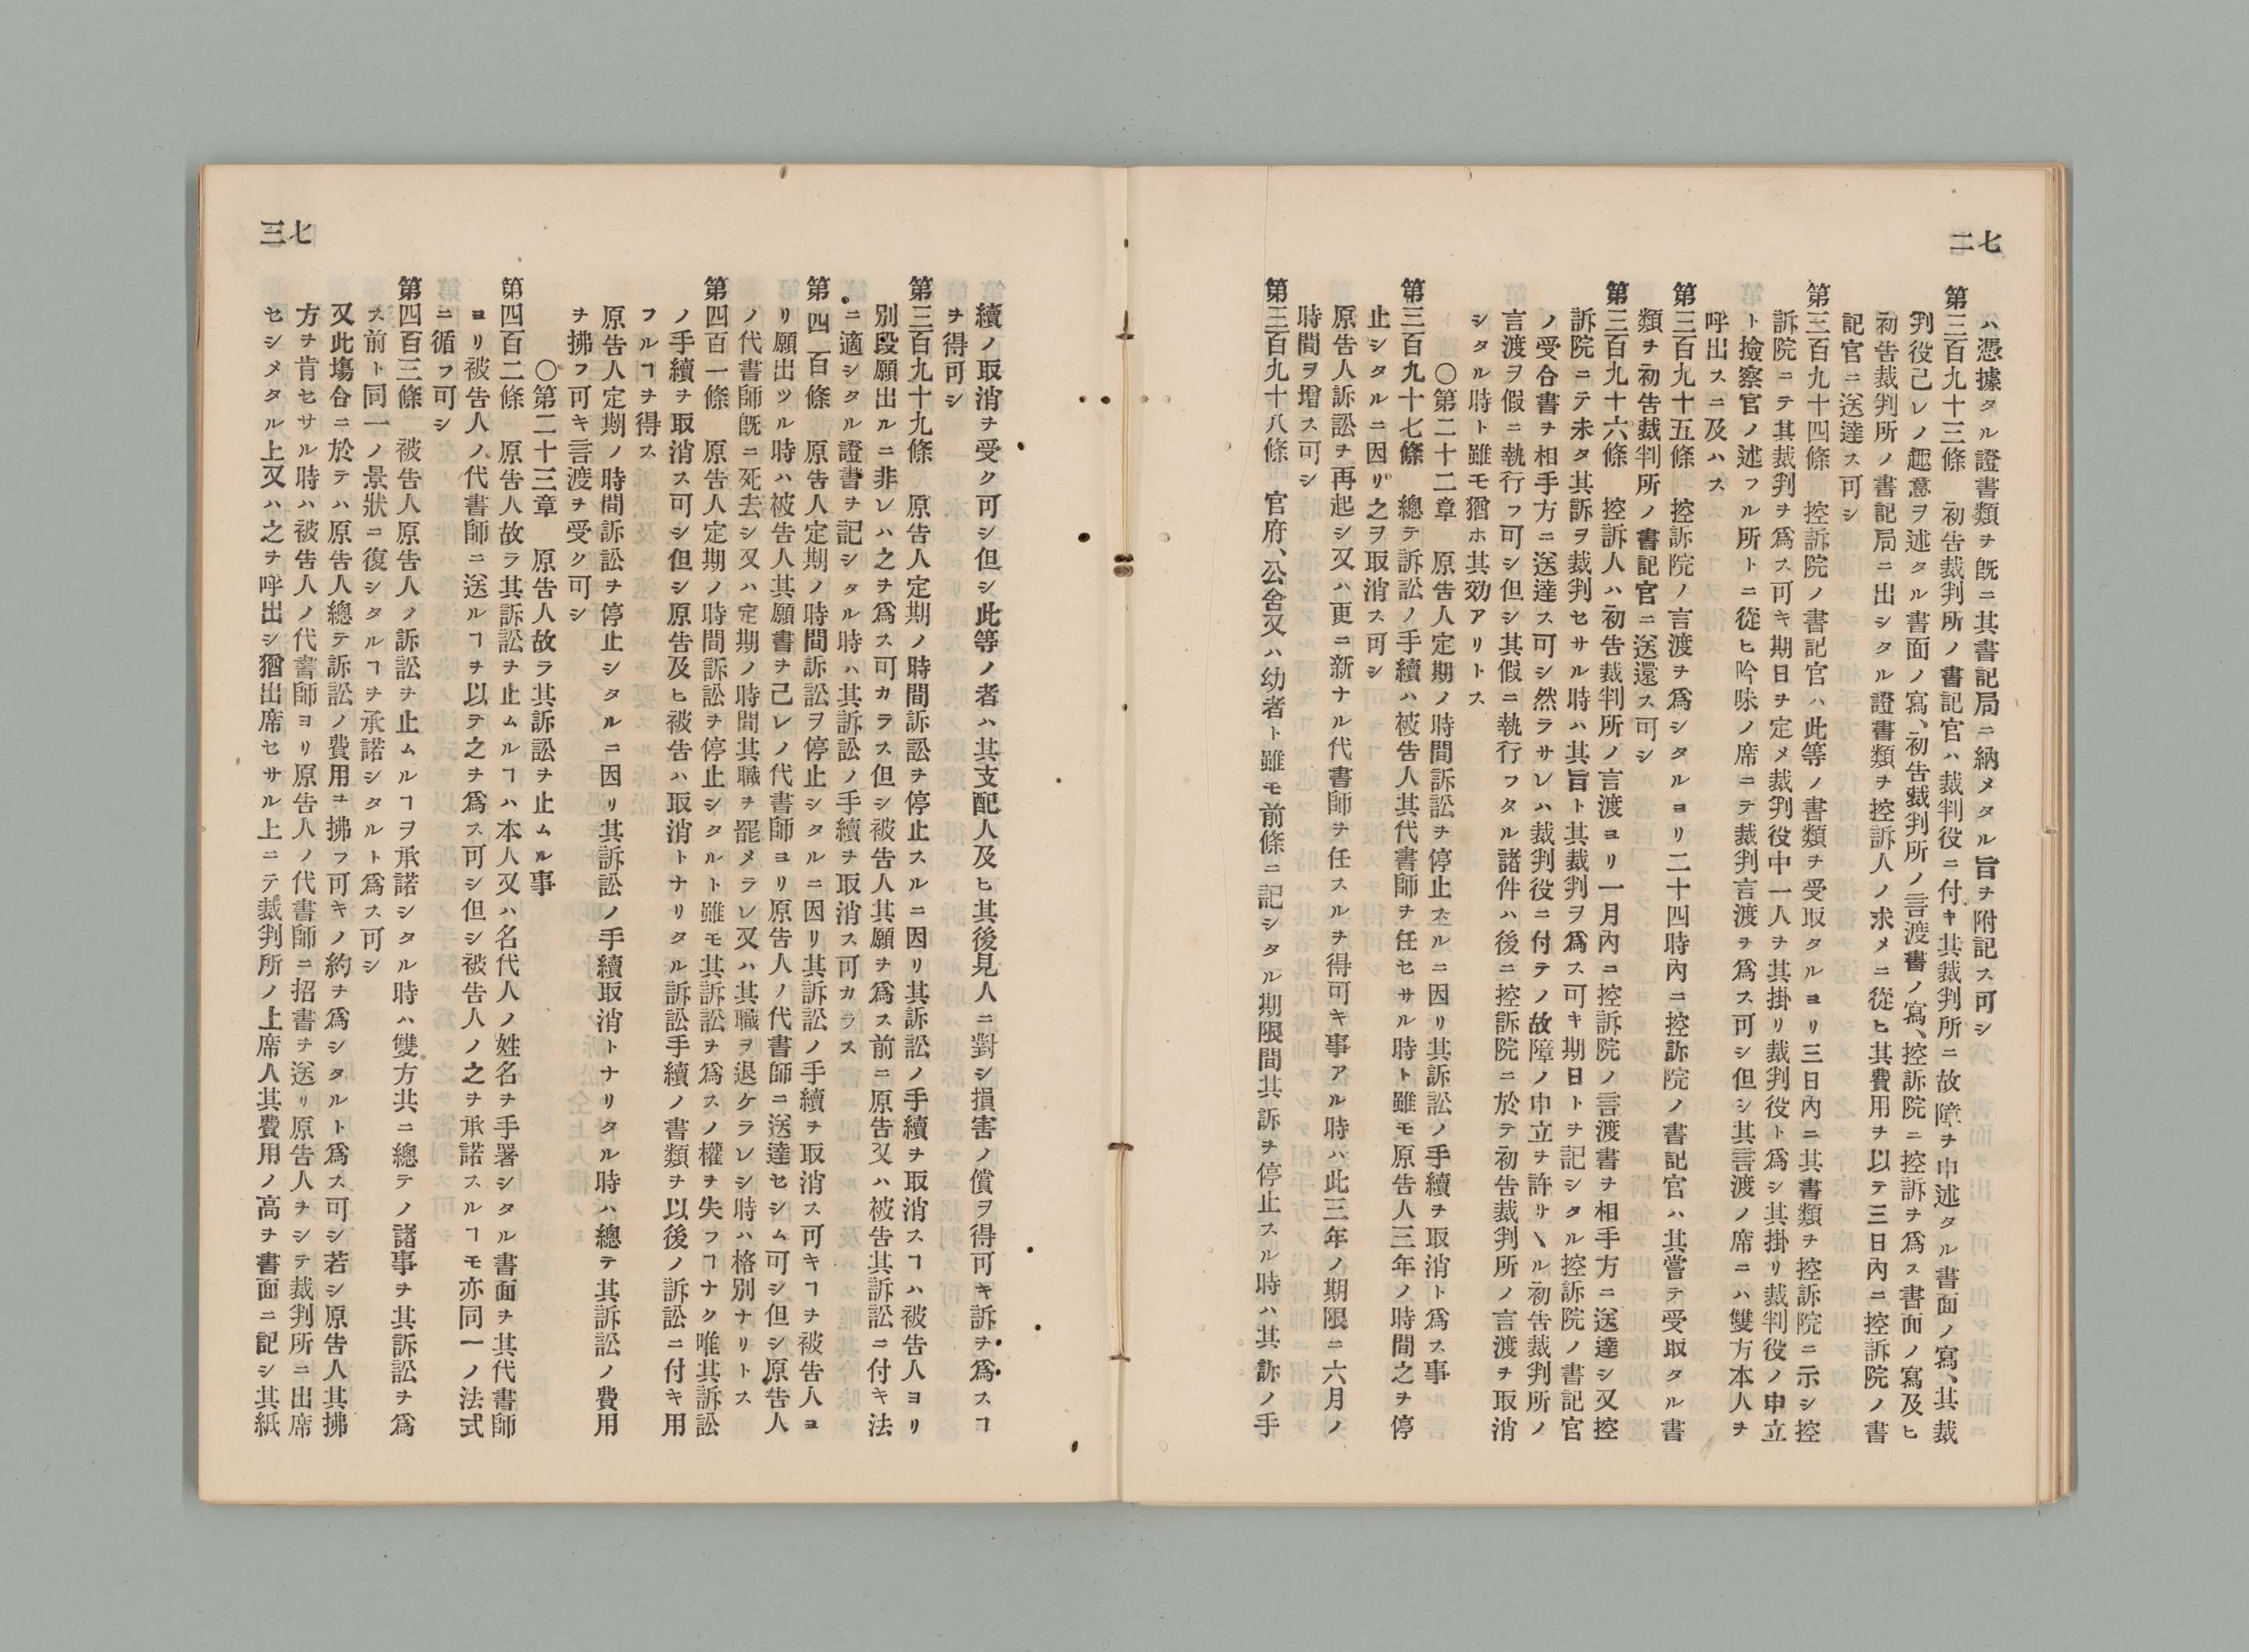 七二
ハ憑據タル證書類ヲ既ニ其書記局ニ納メタル旨ヲ附記ス可シ
第三百九十三條　初告裁判所ノ書記官ハ裁判役ニ付キ其裁判所ニ故障ヲ申述タル書面ノ寫、其裁
判役己レノ趣意ヲ述タル書面ノ寫、初告裁判所ノ言渡書ノ寫、控訴院ニ控訴ヲ爲ス書面ノ寫及ヒ
初告裁判所ノ書記局ニ出シタル證書類ヲ控訴人ノ求メニ從ヒ其費用ヲ以テ三日內ニ控訴院ノ書
記官ニ送達ス可シ
第三百九十四條　控訴院ノ書記官ハ此等ノ書類ヲ受取タルヨリ三日內ニ其書類ヲ控訴院ニ示シ控
訴院ニテ其裁判ヲ爲ス可キ期日ヲ定メ裁判役中一人ヲ其掛リ裁判役ト爲シ其掛リ裁判役ノ申立
ト撿察官ノ述フル所トニ從ヒ吟味ノ席ニテ裁判言渡ヲ爲ス可シ但シ其言渡ノ席ニハ雙方本人ヲ
呼出スニ及ハス
第三百九十五條　控訴院ノ言渡ヲ爲シタルヨリ二十四時內ニ控訴院ノ書記官ハ其嘗テ受取タル書
類ヲ初告裁判所ノ書記官ニ送還ス可シ
第三百九十六條　控訴人ハ初告裁判所ノ言渡ヨリ一月內ニ控訴院ノ言渡書ヲ相手方ニ送達シ又控
訴院ニテ未タ其訴ヲ裁判セサル時ハ其旨ト其裁判ヲ爲ス可キ期日トヲ記シタル控訴院ノ書記官
ノ受合書ヲ相手方ニ送達ス可シ然ラサレハ裁判役ニ付テノ故障ノ申立ヲ許サヽル初告裁判所ノ
言渡ヲ假ニ執行フ可シ但シ其假ニ執行フタル諸件ハ後ニ控訴院ニ於テ初告裁判所ノ言渡ヲ取消
シタル時ト雖モ猶ホ其効アリトス
○第二十二章　原告人定期ノ時間訴訟ヲ停止スルニ因リ其訴訟ノ手續ヲ取消ト爲ス事
第三百九十七條　總テ訴訟ノ手續ハ被告人其代書師ヲ任セサル時ト雖モ原告人三年ノ時間之ヲ停
止シタルニ因リ之ヲ取消ス可シ
原告人訴訟ヲ再起シ又ハ更ニ新ナル代書師ヲ任スルヲ得可キ事アル時ハ此三年ノ期限ニ六月ノ
時間ヲ增ス可シ
第三百九十八條　官府、公舍又ハ幼者ト雖モ前條ニ記シタル期限間其訴ヲ停止スル時ハ其訴ノ手
七三
續ノ取消ヲ受ク可シ但シ此等ノ者ハ其支配人及ヒ其後見人ニ對シ損害ノ償ヲ得可キ訴ヲ爲スヿ
ヲ得可シ
第三百九十九條　原告人定期ノ時間訴訟ヲ停止スルニ因リ其訴訟ノ手續ヲ取消スヿハ被告人ヨリ
別段願出ルニ非レハ之ヲ爲ス可カラス但シ被告人其願ヲ爲ス前ニ原告又ハ被告其訴訟ニ付キ法
ニ適シタル證書ヲ記シタル時ハ其訴訟ノ手續ヲ取消ス可カラス
第四百條　原告人定期ノ時間訴訟ヲ停止シタルニ因リ其訴訟ノ手續ヲ取消ス可キヿヲ被告人ヨ
リ願出ツル時ハ被告人其願書ヲ己レノ代書師ヨリ原告人ノ代書師ニ送達セシム可シ但シ原告人
ノ代書師既ニ死去シ又ハ定期ノ時間其職ヲ罷メラレ又ハ其職ヲ退ケラレシ時ハ格別ナリトス
第四百一條　原告人定期ノ時間訴訟ヲ停止シタルト雖モ其訴訟ヲ爲スノ權ヲ失フヿナク唯其訴訟
ノ手續ヲ取消ス可シ但シ原告及ヒ被告ハ取消トナリタル訴訟手續ノ書類ヲ以後ノ訴訟ニ付キ用
フルヿヲ得ス
原告人定期ノ時間訴訟ヲ停止シタルニ因リ其訴訟ノ手續取消トナリタル時ハ總テ其訴訟ノ費用
ヲ拂フ可キ言渡ヲ受ク可シ
○第二十三章　原告人故ラ其訴訟ヲ止ムル事
第四百二條　原告人故ラ其訴訟ヲ止ムルヿハ本人又ハ名代人ノ姓名ヲ手署シタル書面ヲ其代書師
ヨリ被告人ノ代書師ニ送ルヿヲ以テ之ヲ爲ス可シ但シ被告人ノ之ヲ承諾スルヿモ亦同一ノ法式
ニ循フ可シ
第四百三條　被告人原告人ノ訴訟ヲ止ムルヿヲ承諾シタル時ハ雙方共ニ總テノ諸事ヲ其訴訟ヲ爲
ス前ト同一ノ景狀ニ復シタルヿヲ承諾シタルト爲ス可シ
又此塲合ニ於テハ原告人總テ訴訟ノ費用ヲ拂フ可キノ約ヲ爲シタルト爲ス可シ若シ原告人其拂
方ヲ肯セサル時ハ被告人ノ代書師ヨリ原告人ノ代書師ニ招書ヲ送リ原告人ヲシテ裁判所ニ出席
セシメタル上又ハ之ヲ呼出シ猶出席セサル上ニテ裁判所ノ上席人其費用ノ高ヲ書面ニ記シ其紙